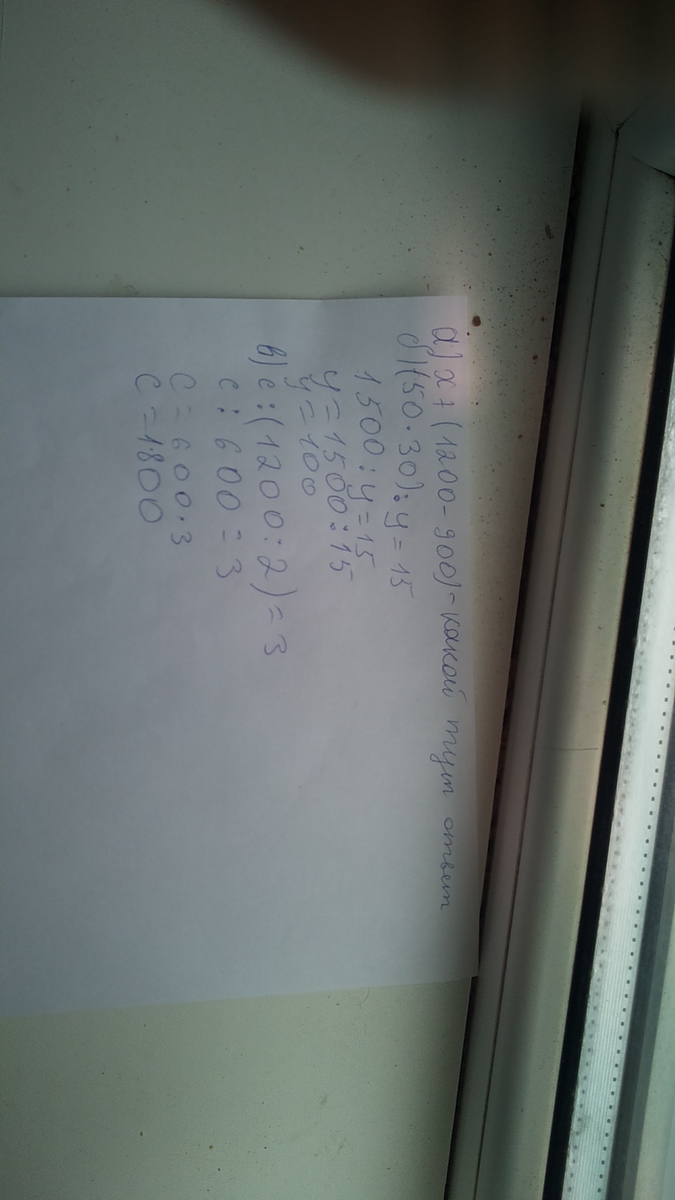 а) x + (1200 - 900) - какой тут ответ
б) (50 · 30) : y = 15
1500 : y = 15
y = 1500 : 15
y = 100
в) c : (1200 : 2) = 3
c : 600 = 3
c = 600 · 3
c = 1800